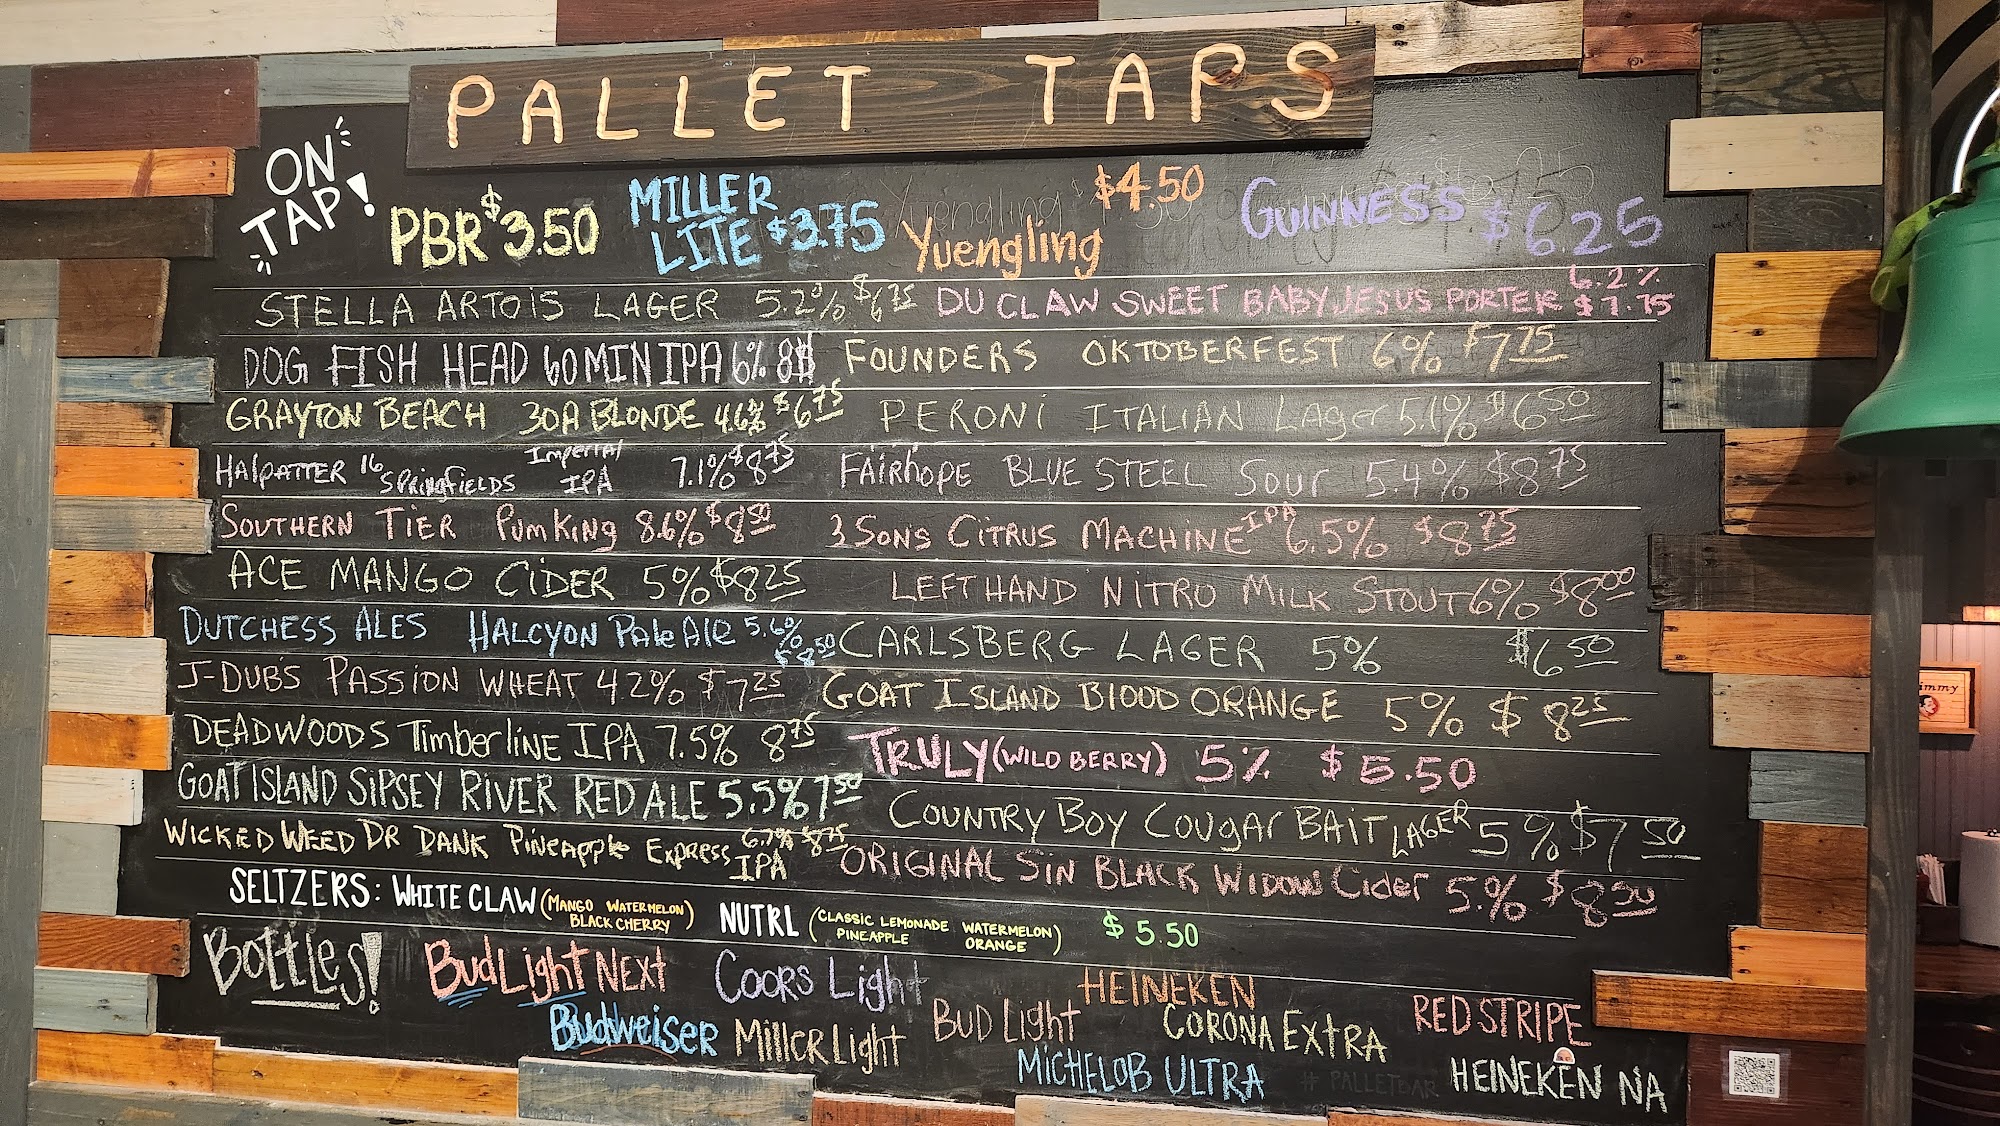 PALLET TAPS
ON TAP!
PBR $3.50
MILLER LITE $3.75
Yuengling $4.50
GUINNESS $6.25
STELLA ARTOIS LAGER 5.2% $6.75
DU CLAW SWEET BABY JESUS PORTER 6.2% $7.75
DOG FISH HEAD 60 MIN IPA 6% 8$
FOUNDERS OKTOBERFEST 6% $7.75
GRAYTON BEACH 30A BLONDE 4.6% $6.75
PERONI ITALIAN Lager 5.1% $6.50
HALPATTER 16 SPRINGFIELDS Imperial IPA 7.1% $8.75
FAIRHOPE BLUE STEEL Sour 5.4% $8.75
SOUTHERN TIER PumKing 8.6% $8.50
3 SONS CITRUS MACHINE IPA 6.5% $8.75
ACE MANGO CIDER 5% $8.25
LEFT HAND NITRO MILK STOUT 6% $8.00
DUTCHESS ALES HALCYON Pale Ale 5.6% $8.50
CARLSBERG LAGER 5% $6.50
J-DUB'S PASSION WHEAT 4.2% $7.25
GOAT ISLAND BLOOD ORANGE 5% $8.25
DEADWOODS Timberline IPA 7.5% 8.75
TRULY (WILD BERRY) 5% $5.50
GOAT ISLAND SIPSEY RIVER RED ALE 5.5% 7.50
COUNTRY BOY COUGAR BAIT LAGER 5% $7.50
WICKED WEED DR DANK Pineapple Express IPA 6.7% $8.75
ORIGINAL SIN BLACK WIDOW Cider 5.% $8.50
SELTZERS: WHITE CLAW (MANGO WATERMELON BLACK CHERRY) NUTRL (CLASSIC LEMONADE WATERMELON PINEAPPLE ORANGE) $5.50
Bottles!
Bud Light NEXT
COORS Light
HEINEKEN
RED STRIPE
Budweiser
Miller Light
BUD Light
CORONA EXTRA
MICHELOB ULTRA
# PALLETBAR
HEINEKEN NA